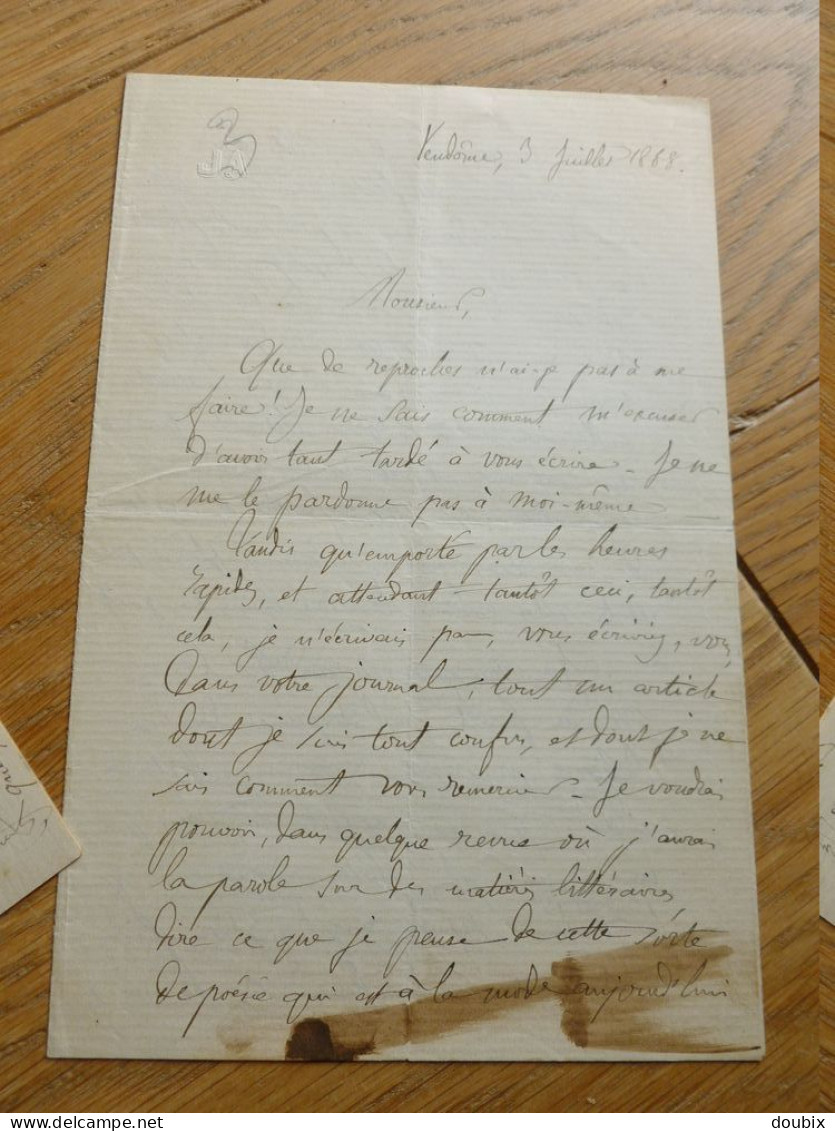 3
JA
Vendôme, 3 Juillet 1868.
Monsieur,
Que de reproches n'ai-je pas à me
faire! Je ne sais comment m'excuser
d'avoir tant tardé à vous écrire - Je ne
me le pardonne pas à moi-même
Tandis qu'emporté par les heures
rapides, et attendant tantôt ceci, tantôt
cela, je n'écrivais pas, vous écriviez, vous,
dans votre journal, tout un article
dont je suis tout confus, et dont je ne
sais comment vous remercier - Je voudrais
pouvoir, dans quelque revue où j'aurais
la parole sur des matières littéraires,
dire ce que je pense de cette sorte
de poésie qui est à la mode aujourd'hui
delcampe.net
doubix